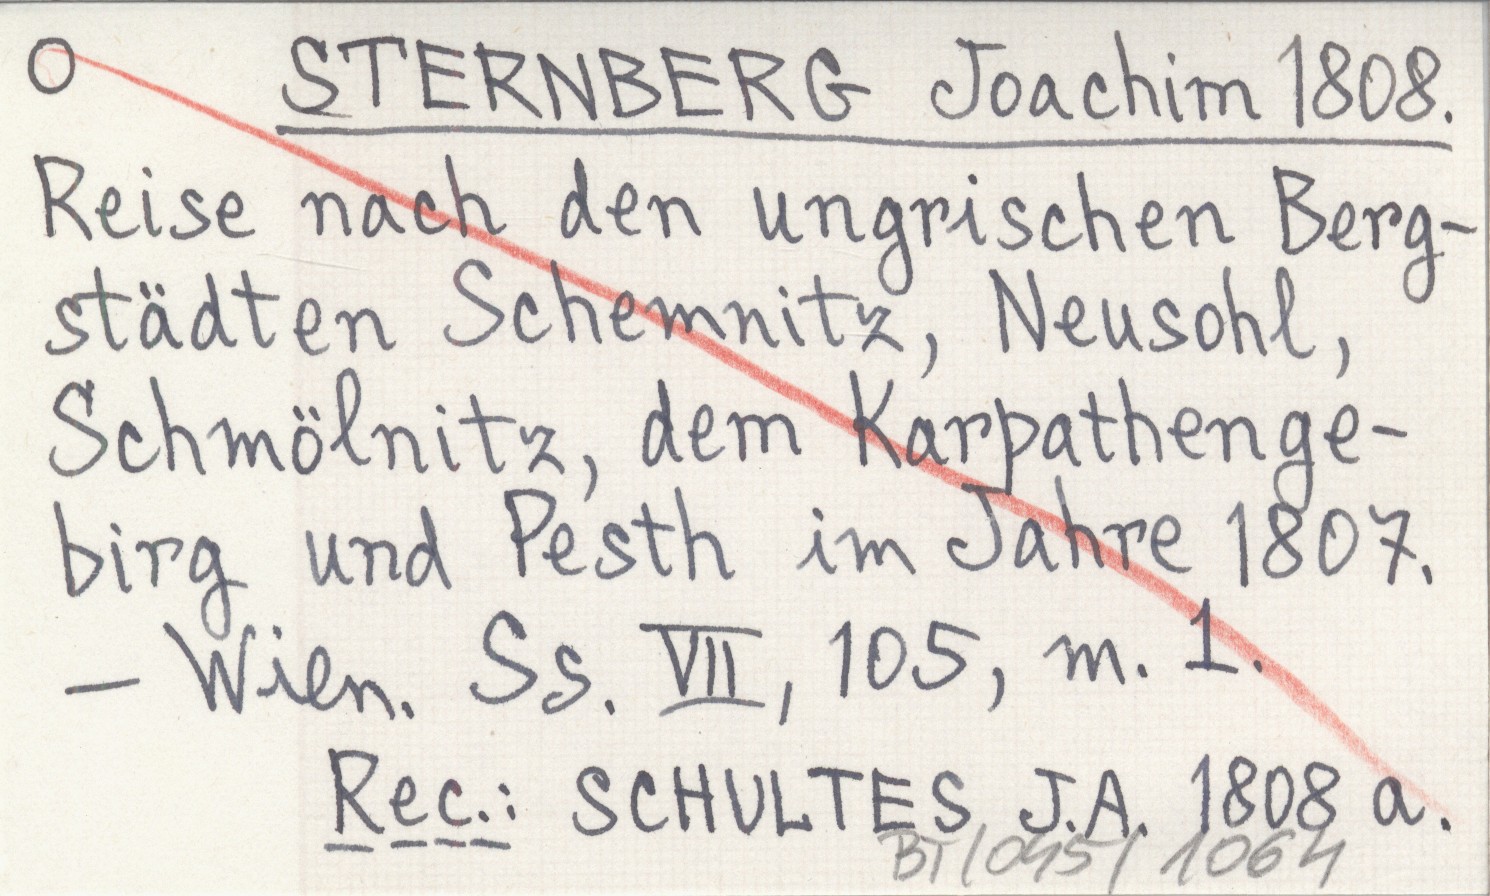 O STERNBERG Joachim 1808.
Reise nach den ungrischen Berg-
städten Schemnitz, Neusohl,
Schmölnitz, dem Karpathenge-
birg und Pesth im Jahre 1807.
— Wien. Ss. VII, 105, m. 1.
Rec.: SCHULTES J.A. 1808 a.
BT/045/1064